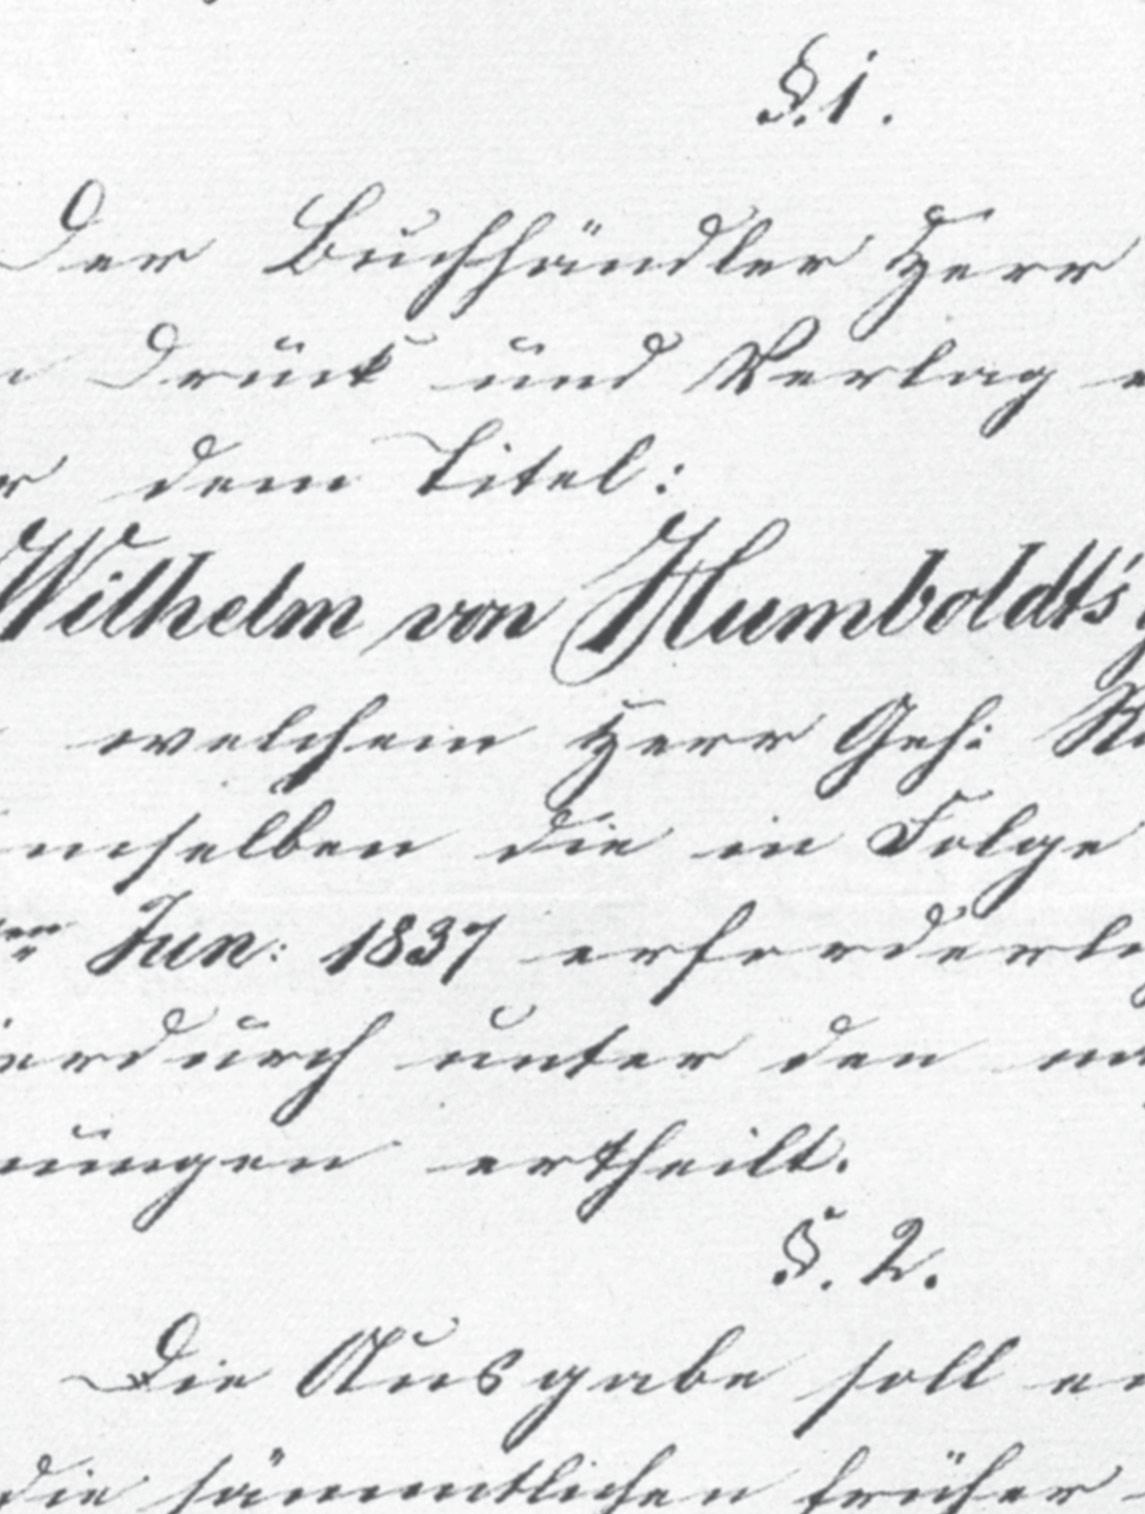 §. 1.
Der Buchhändler Herr
Druck und Verlag
dem Titel:
Wilhelm von Humboldt's
welchem Herr Geh:
demselben die in Folge
ten Jun: 1837 erforderli
ierdurch unter den
nungen ertheilt.
§. 2.
Die Ausgabe soll
die sämmtlichen früher